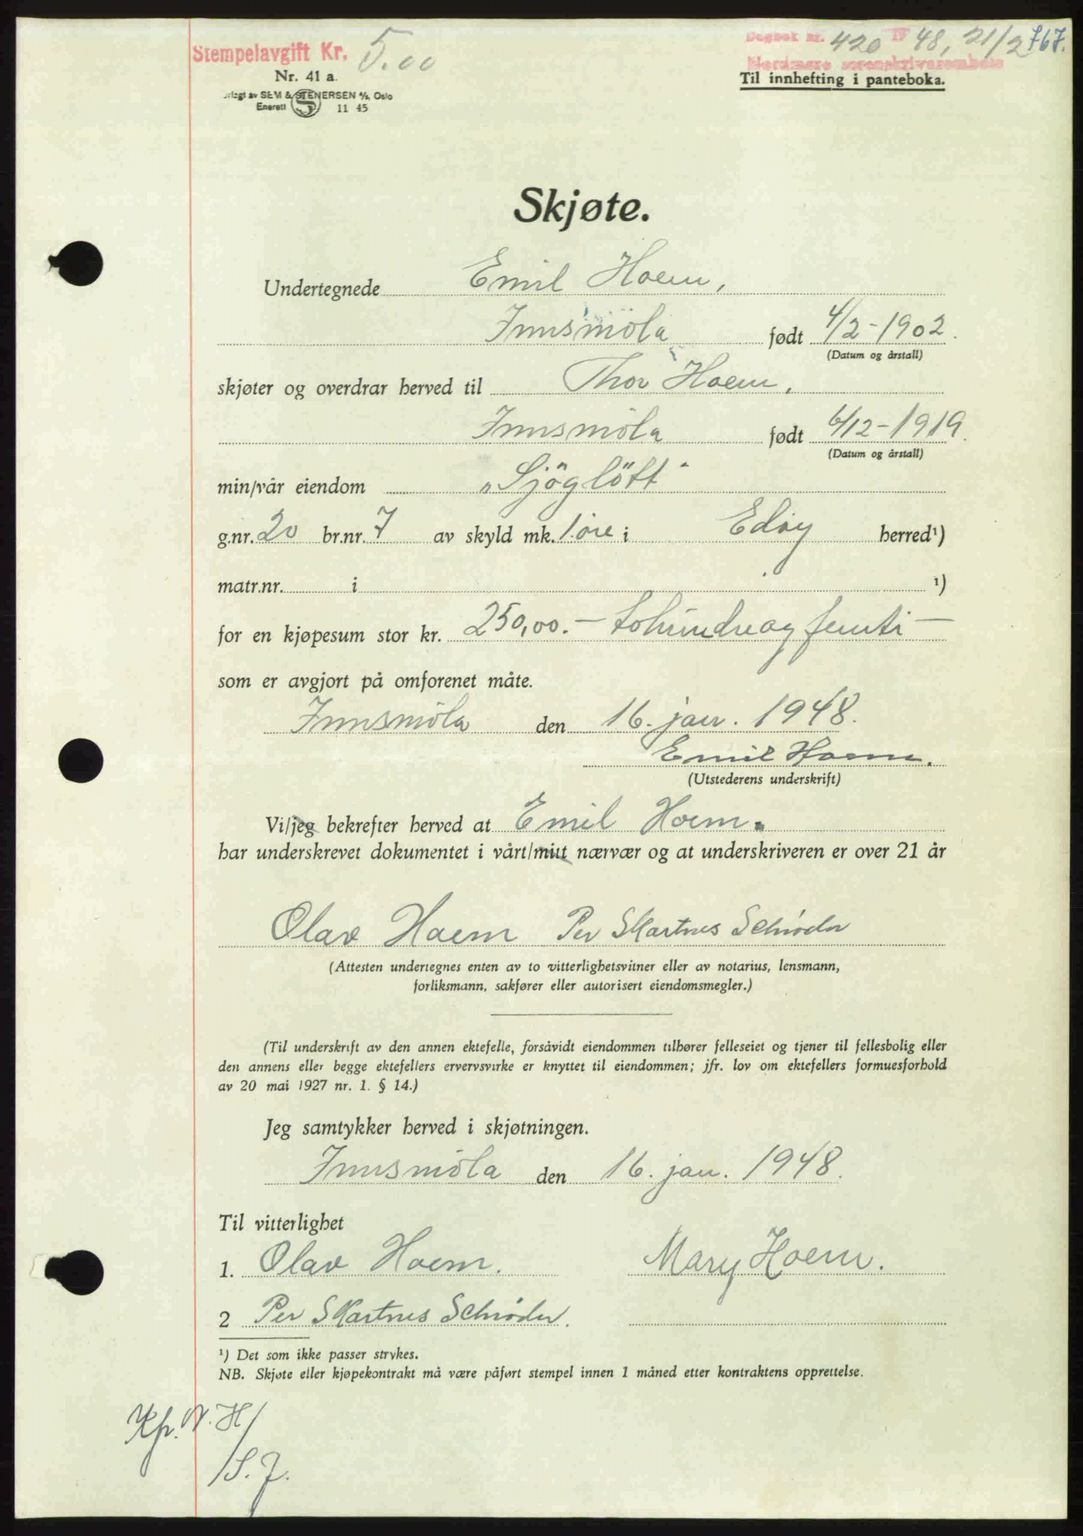 Stempelavgift Kr. 5.00
Dagbok nr. 420 19 48, 21/2 767.
Nordmøre sorenskriverembete
Nr. 41 a.
SEM & STENERSEN A/S, Oslo
Enerett S 11 45
Til innhefting i panteboka.
Skjøte.
Undertegnede Emil Hoem,
Innsmöla født 4/2-1902.
(Datum og årstall)
skjøter og overdrar herved til Thor Hoem,
Innsmöla født 6/12-1919.
(Datum og årstall)
min/vår eiendom "Sjöglött"
g.nr. 20 br.nr. 7 av skyld mk. 1 öre i Edöy herred¹)
matr.nr. i ¹)
for en kjøpesum stor kr. 250,00.- tohundreogfemti -
som er avgjort på omforenet måte.
Innsmöla den 16. jan. 1948.
Emil Hoem.
(Utstederens underskrift)
Vi/jeg bekrefter herved at Emil Hoem.
har underskrevet dokumentet i vårt/mitt nærvær og at underskriveren er over 21 år
Olav Hoem Per Skartnes Schrøder
(Attesten undertegnes enten av to vitterlighetsvitner eller av notarius, lensmann,
forliksmann, sakfører eller autorisert eiendomsmegler.)
(Til underskrift av den annen ektefelle, forsåvidt eiendommen tilhører felleseiet og tjener til fellesbolig eller
den annens eller begge ektefellers ervervsvirke er knyttet til eiendommen; jfr. lov om ektefellers formuesforhold
av 20 mai 1927 nr. 1. § 14.)
Jeg samtykker herved i skjøtningen.
Innsmöla den 16. jan. 1948.
Til vitterlighet
1. Olav Hoem. Mary Hoem.
2 Per Skartnes Schrøder.
¹) Det som ikke passer strykes.
NB. Skjøte eller kjøpekontrakt må være påført stempel innen 1 måned etter kontraktens opprettelse.
Kp. N. H/
/S. J.